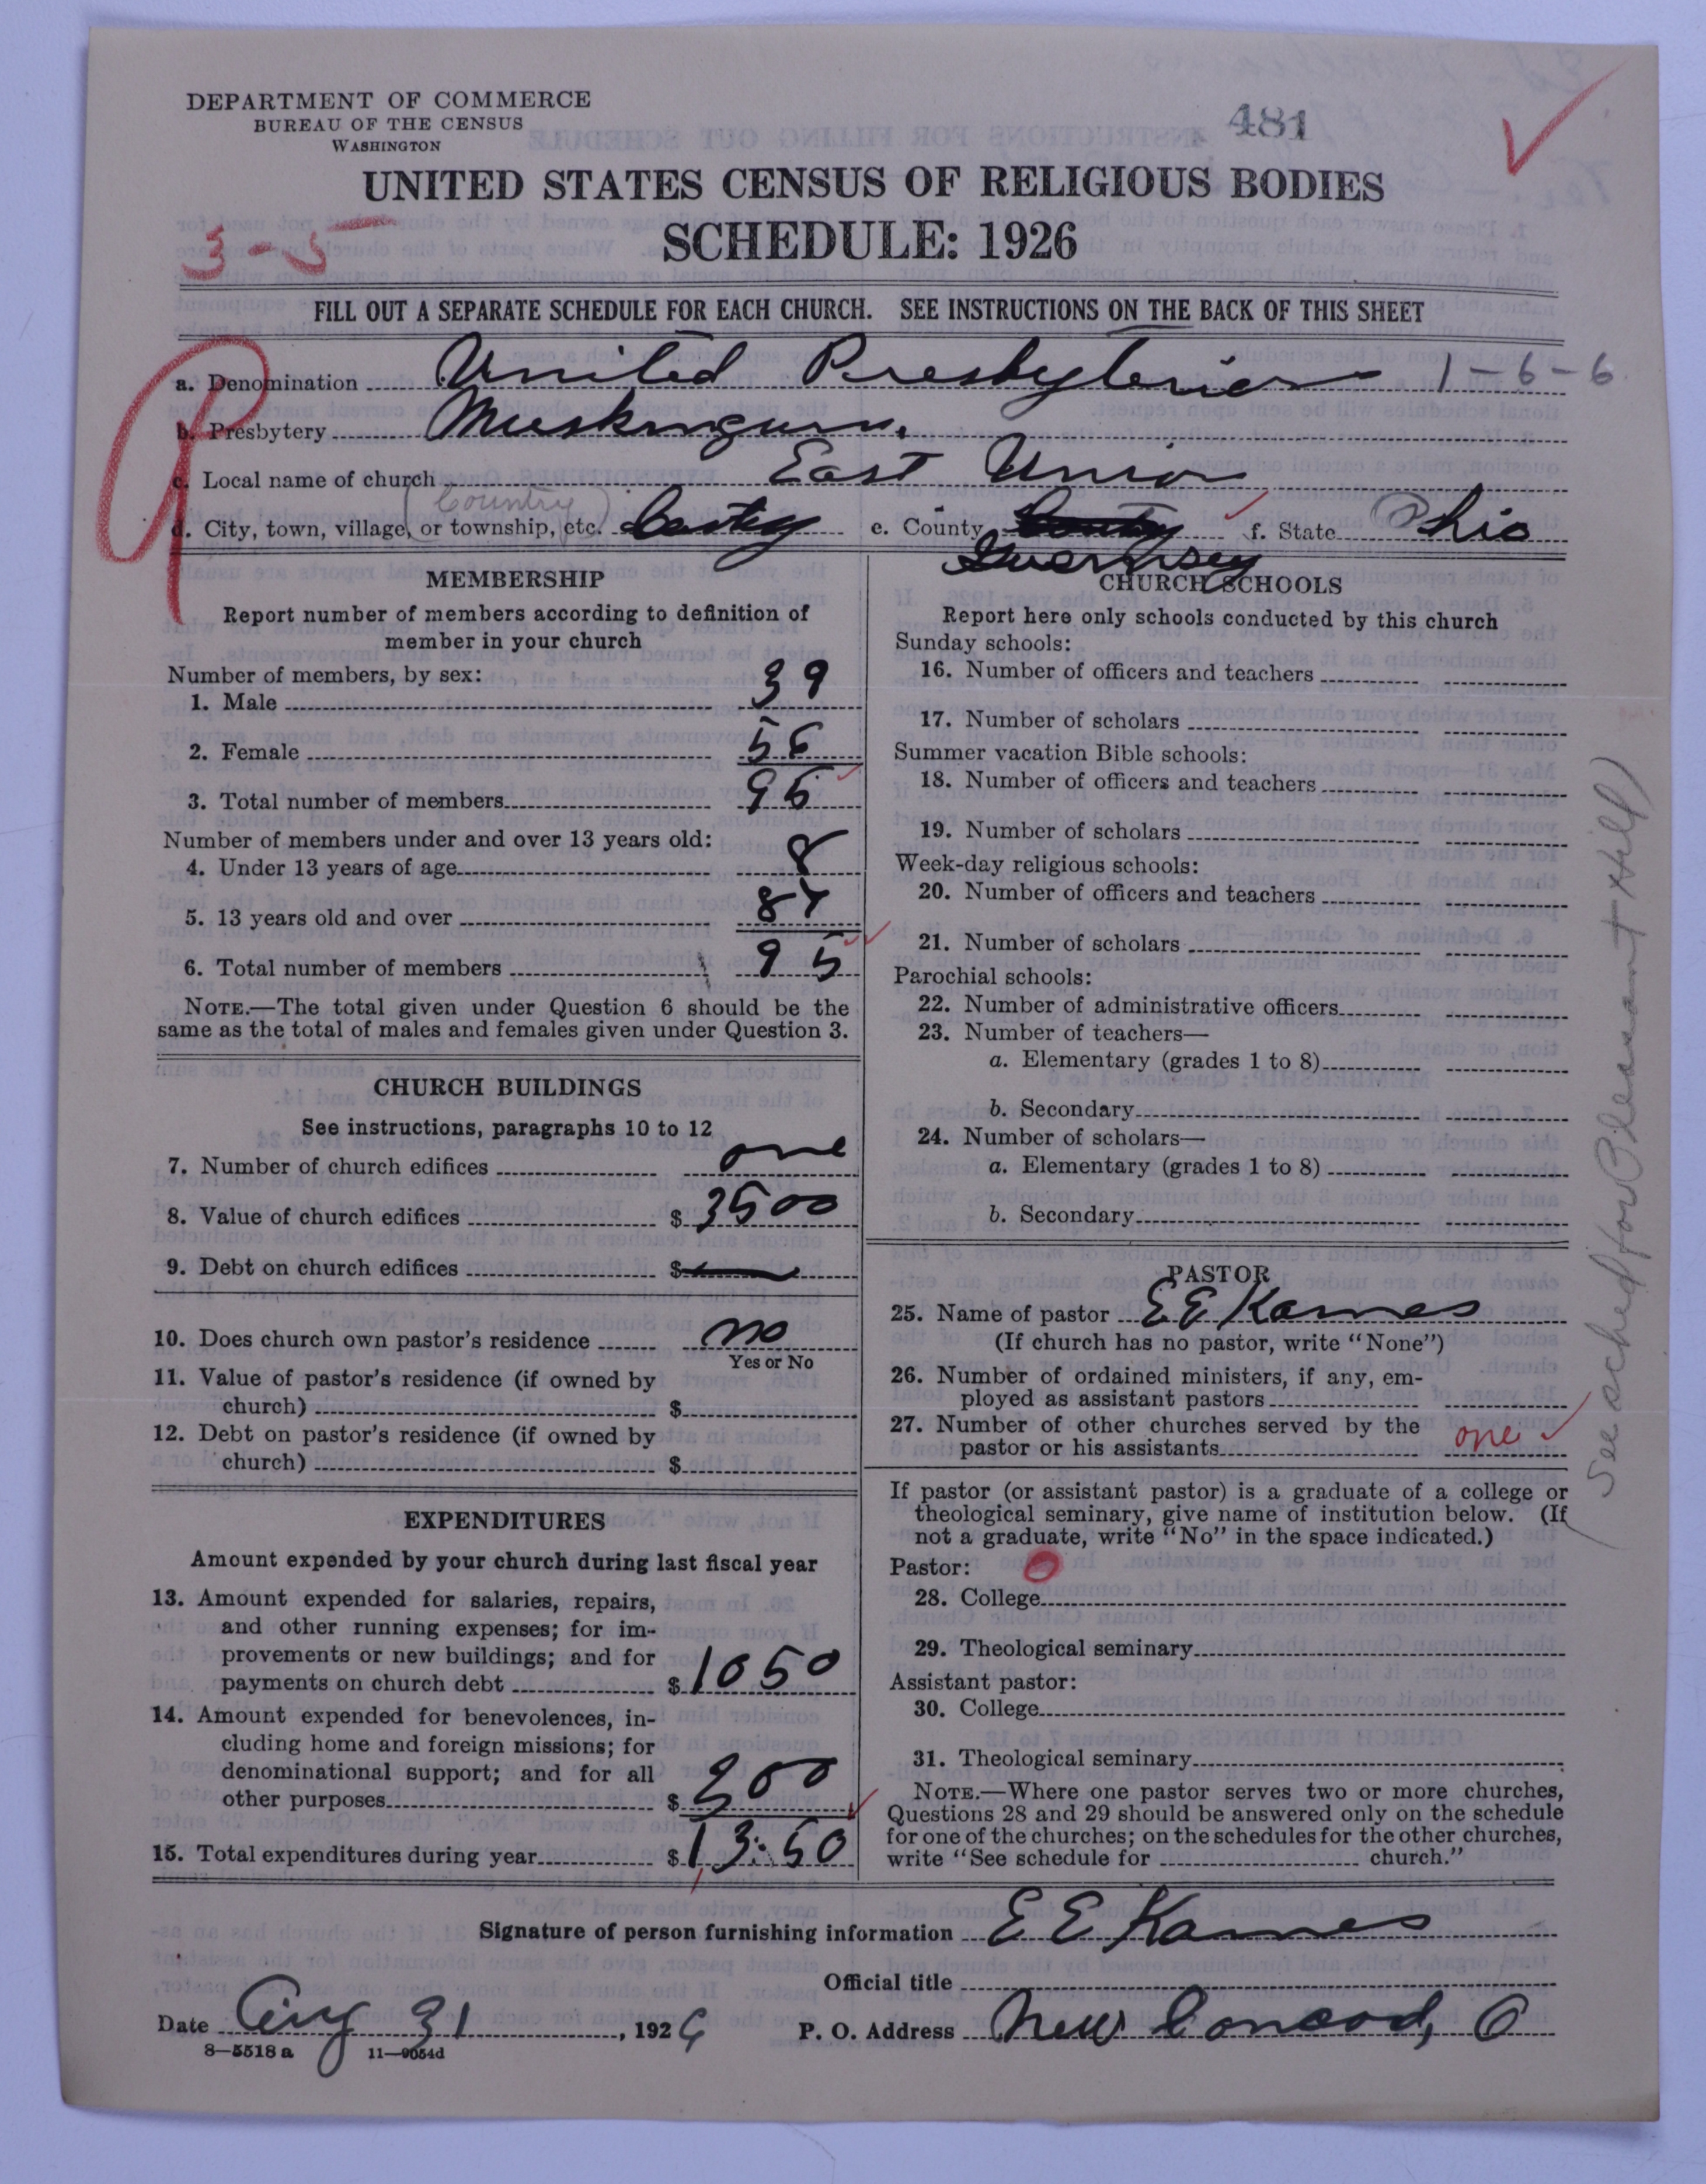 DEPARTMENT OF COMMERCE
BUREAU OF THE CENSUS
WASHINGTON
481
UNITED STATES CENSUS OF RELIGIOUS BODIES
SCHEDULE: 1926
3-5
FILL OUT A SEPARATE SCHEDULE FOR EACH CHURCH. SEE INSTRUCTIONS ON THE BACK OF THIS SHEET
a. Denomination United Presbyterian 1-6-6
b. Presbytery Muskingum.
c. Local name of church East Union
(Country)
d. City, town, village, or township, etc. e. County f. State Ohio
Guernsey
MEMBERSHIP
Report number of members according to definition of
member in your church
Number of members, by sex:
1. Male 39
2. Female 56
3. Total number of members 95
Number of members under and over 13 years old:
4. Under 13 years of age 8
5. 13 years old and over 87
6. Total number of members 95
NOTE.—The total given under Question 6 should be the
same as the total of males and females given under Question 3.
CHURCH BUILDINGS
See instructions, paragraphs 10 to 12
7. Number of church edifices one
8. Value of church edifices $ 3500
9. Debt on church edifices $
10. Does church own pastor's residence no
Yes or No
11. Value of pastor's residence (if owned by
church) $
12. Debt on pastor's residence (if owned by
church) $
EXPENDITURES
Amount expended by your church during last fiscal year
13. Amount expended for salaries, repairs,
and other running expenses; for im-
provements or new buildings; and for
payments on church debt $ 1050
14. Amount expended for benevolences, in-
cluding home and foreign missions; for
denominational support; and for all
other purposes $ 300
15. Total expenditures during year $ 13:50
CHURCH SCHOOLS
Report here only schools conducted by this church
Sunday schools:
16. Number of officers and teachers
17. Number of scholars
Summer vacation Bible schools:
18. Number of officers and teachers
19. Number of scholars
Week-day religious schools:
20. Number of officers and teachers
21. Number of scholars
Parochial schools:
22. Number of administrative officers
23. Number of teachers—
a. Elementary (grades 1 to 8)
b. Secondary
24. Number of scholars—
a. Elementary (grades 1 to 8)
b. Secondary
PASTOR
25. Name of pastor E E Karnes
(If church has no pastor, write "None")
26. Number of ordained ministers, if any, em-
ployed as assistant pastors
27. Number of other churches served by the
pastor or his assistants one
If pastor (or assistant pastor) is a graduate of a college or
theological seminary, give name of institution below. (If
not a graduate, write "No" in the space indicated.)
Pastor:
28. College
29. Theological seminary
Assistant pastor:
30. College
31. Theological seminary
NOTE.—Where one pastor serves two or more churches,
Questions 28 and 29 should be answered only on the schedule
for one of the churches; on the schedules for the other churches,
write "See schedule for church."
See sched for Pleasant Hill)
Signature of person furnishing information E E Karnes
Official title
Date Aug 31, 1926 P. O. Address New Concord, O
8—5518 a 11—9054d